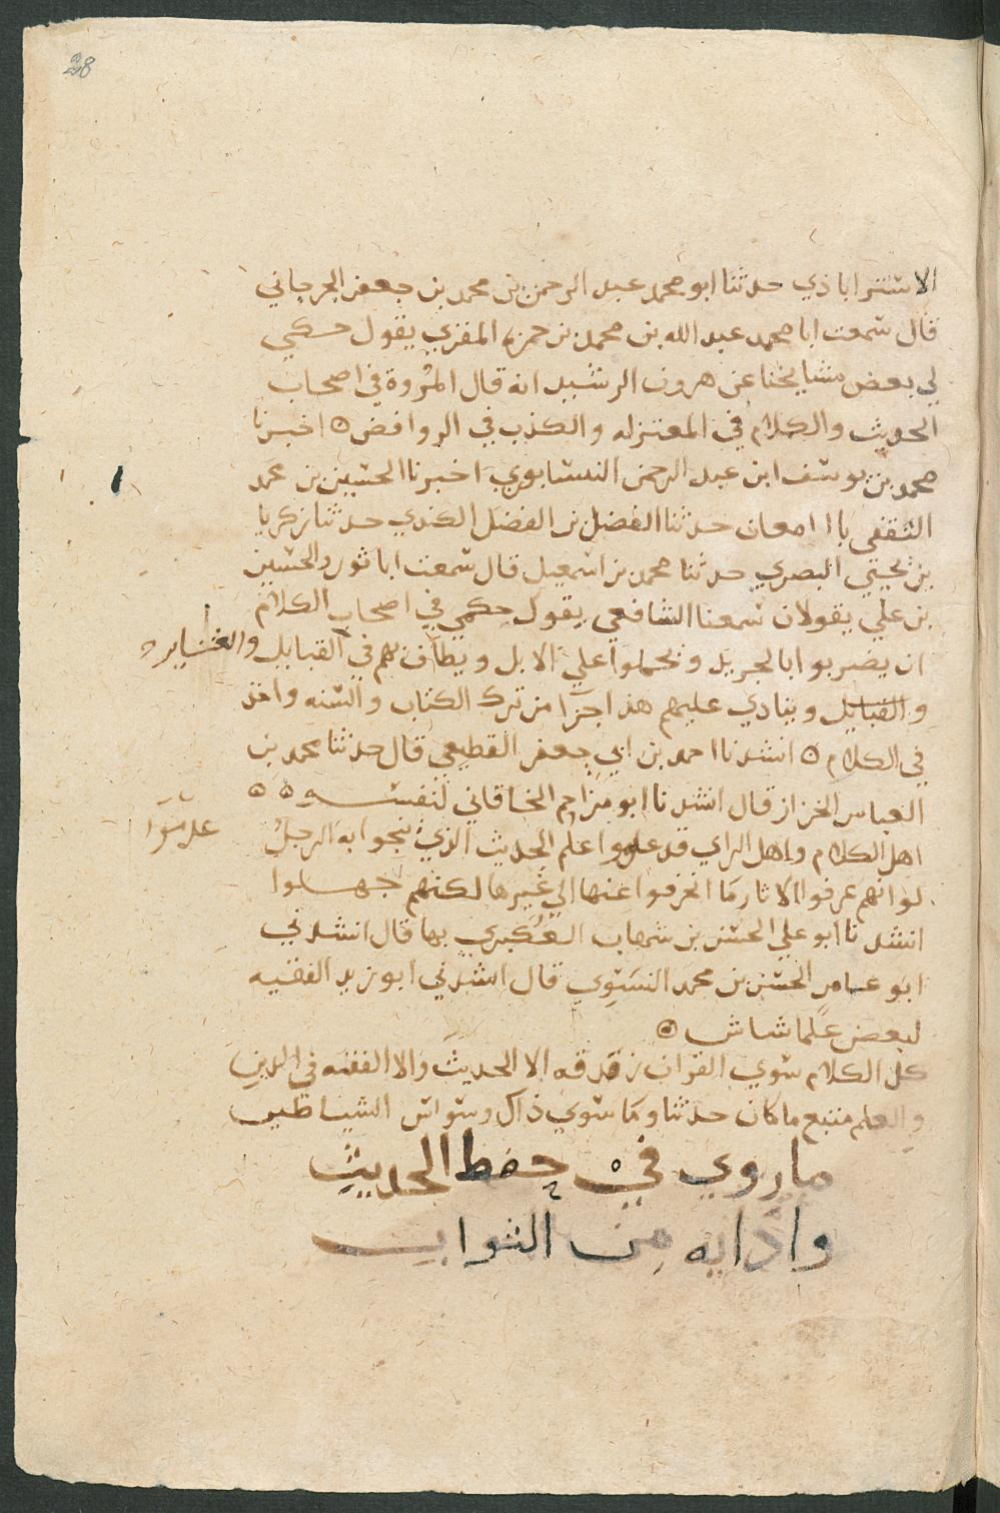 28
الاستراباذي حدثنا ابو محمد عبد الرحمن بن محمد بن جعفر الجرجاني
قال سمعت ابا محمد عبد الله بن محمد بن حمزه المقري يقول حكي
لي بعض مشايخنا عن هرون الرشيد انه قال المروة في اصحاب
الحديث والكلام في المعتزله والكذب في الروافض ٥ اخبرنا
محمد بن يوسف ابن عبد الرحمن النيسابوري اخبرنا الحسين بن محمد
الثقفي بالدامعان حدثنا الفضل بن الفضل الكندي حدثنا زكريا
بن يحيي البصري حدثنا محمد بن اسمعيل قال سمعت ابا ثور والحسين
بن علي يقولان سمعنا الشافعي يقول حكمي في اصحاب الكلام
ان يضربوا بالجريد ويحملوا علي الابل ويطاف بهم في القبايل والعشاير
والقبايل وينادي عليهم هذا جزا من ترك الكتاب والسنه واخذ
في الكلام ٥ انشدنا احمد بن ابي جعفر القطيعي قال حدثنا محمد بن
العباس الخزاز قال انشدنا ابو مزاحم الخاقاني لنفسه ٥ ٥
اهل الكلام واهل الراي قد عدموا علم الحديث الذي ينجوا به الرجل
عدموا
لو انهم عرفوا الاثار ما انحرفوا عنها الي غيرها لكنهم جهلوا
انشدنا ابو علي الحسن بن شهاب العكبري بها قال انشدني
ابو عامر الحسن بن محمد النسوي قال انشدني ابو زيد الفقيه
لبعض علما شاش ٥
كل الكلام سوي القران زندقه الا الحديث والا الفقه في الدين
والعلم متبع ما كان حدثنا وما سوي ذاك وسواس الشياطين
ما روي في حفظ الحديث
وادايه من الثواب